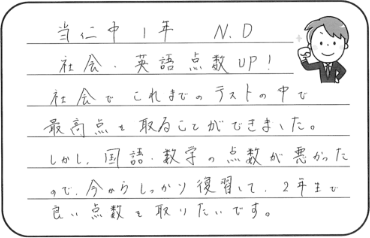 当仁中1年 N.D
社会・英語点数UP!
社会でこれまでのテストの中で
最高点を取ることができました。
しかし、国語・数学の点数が悪かった
ので、今からしっかり復習して、2年生で
良い点数を取りたいです。